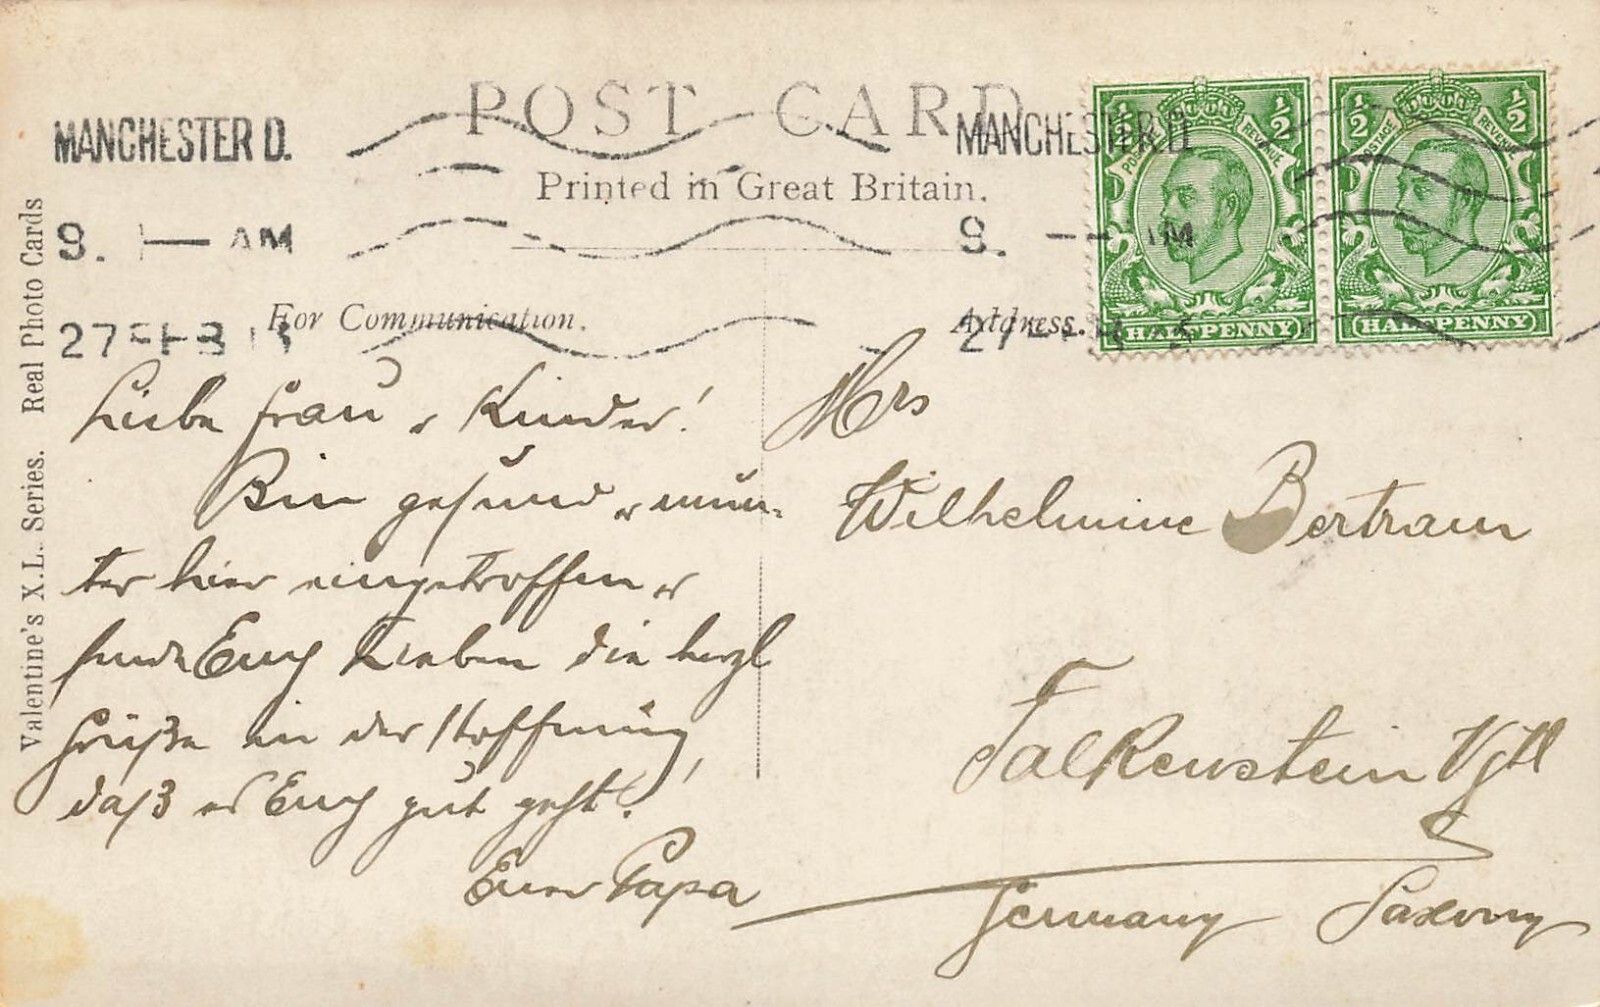 POST CARD
MANCHESTER D.
MANCHESTER D.
Printed in Great Britain.
9. 1— AM
9. —— AM
For Communication.
Address.
27 FEB 13
27 FEB 13
½ ½
POSTAGE REVENUE
HALFPENNY
½ ½
POSTAGE REVENUE
HALFPENNY
Valentine's X.L. Series. Real Photo Cards
Liebe Frau u. Kinder!
Bin gesund u. mun-
ter hier eingetroffen u.
sende Euch Lieben die herzl
Grüße in der Hoffnung,
daß es Euch gut geht!
Euer Papa
Mrs
Wilhelmine Bertram
Falkenstein Vgtl
Germany Saxony